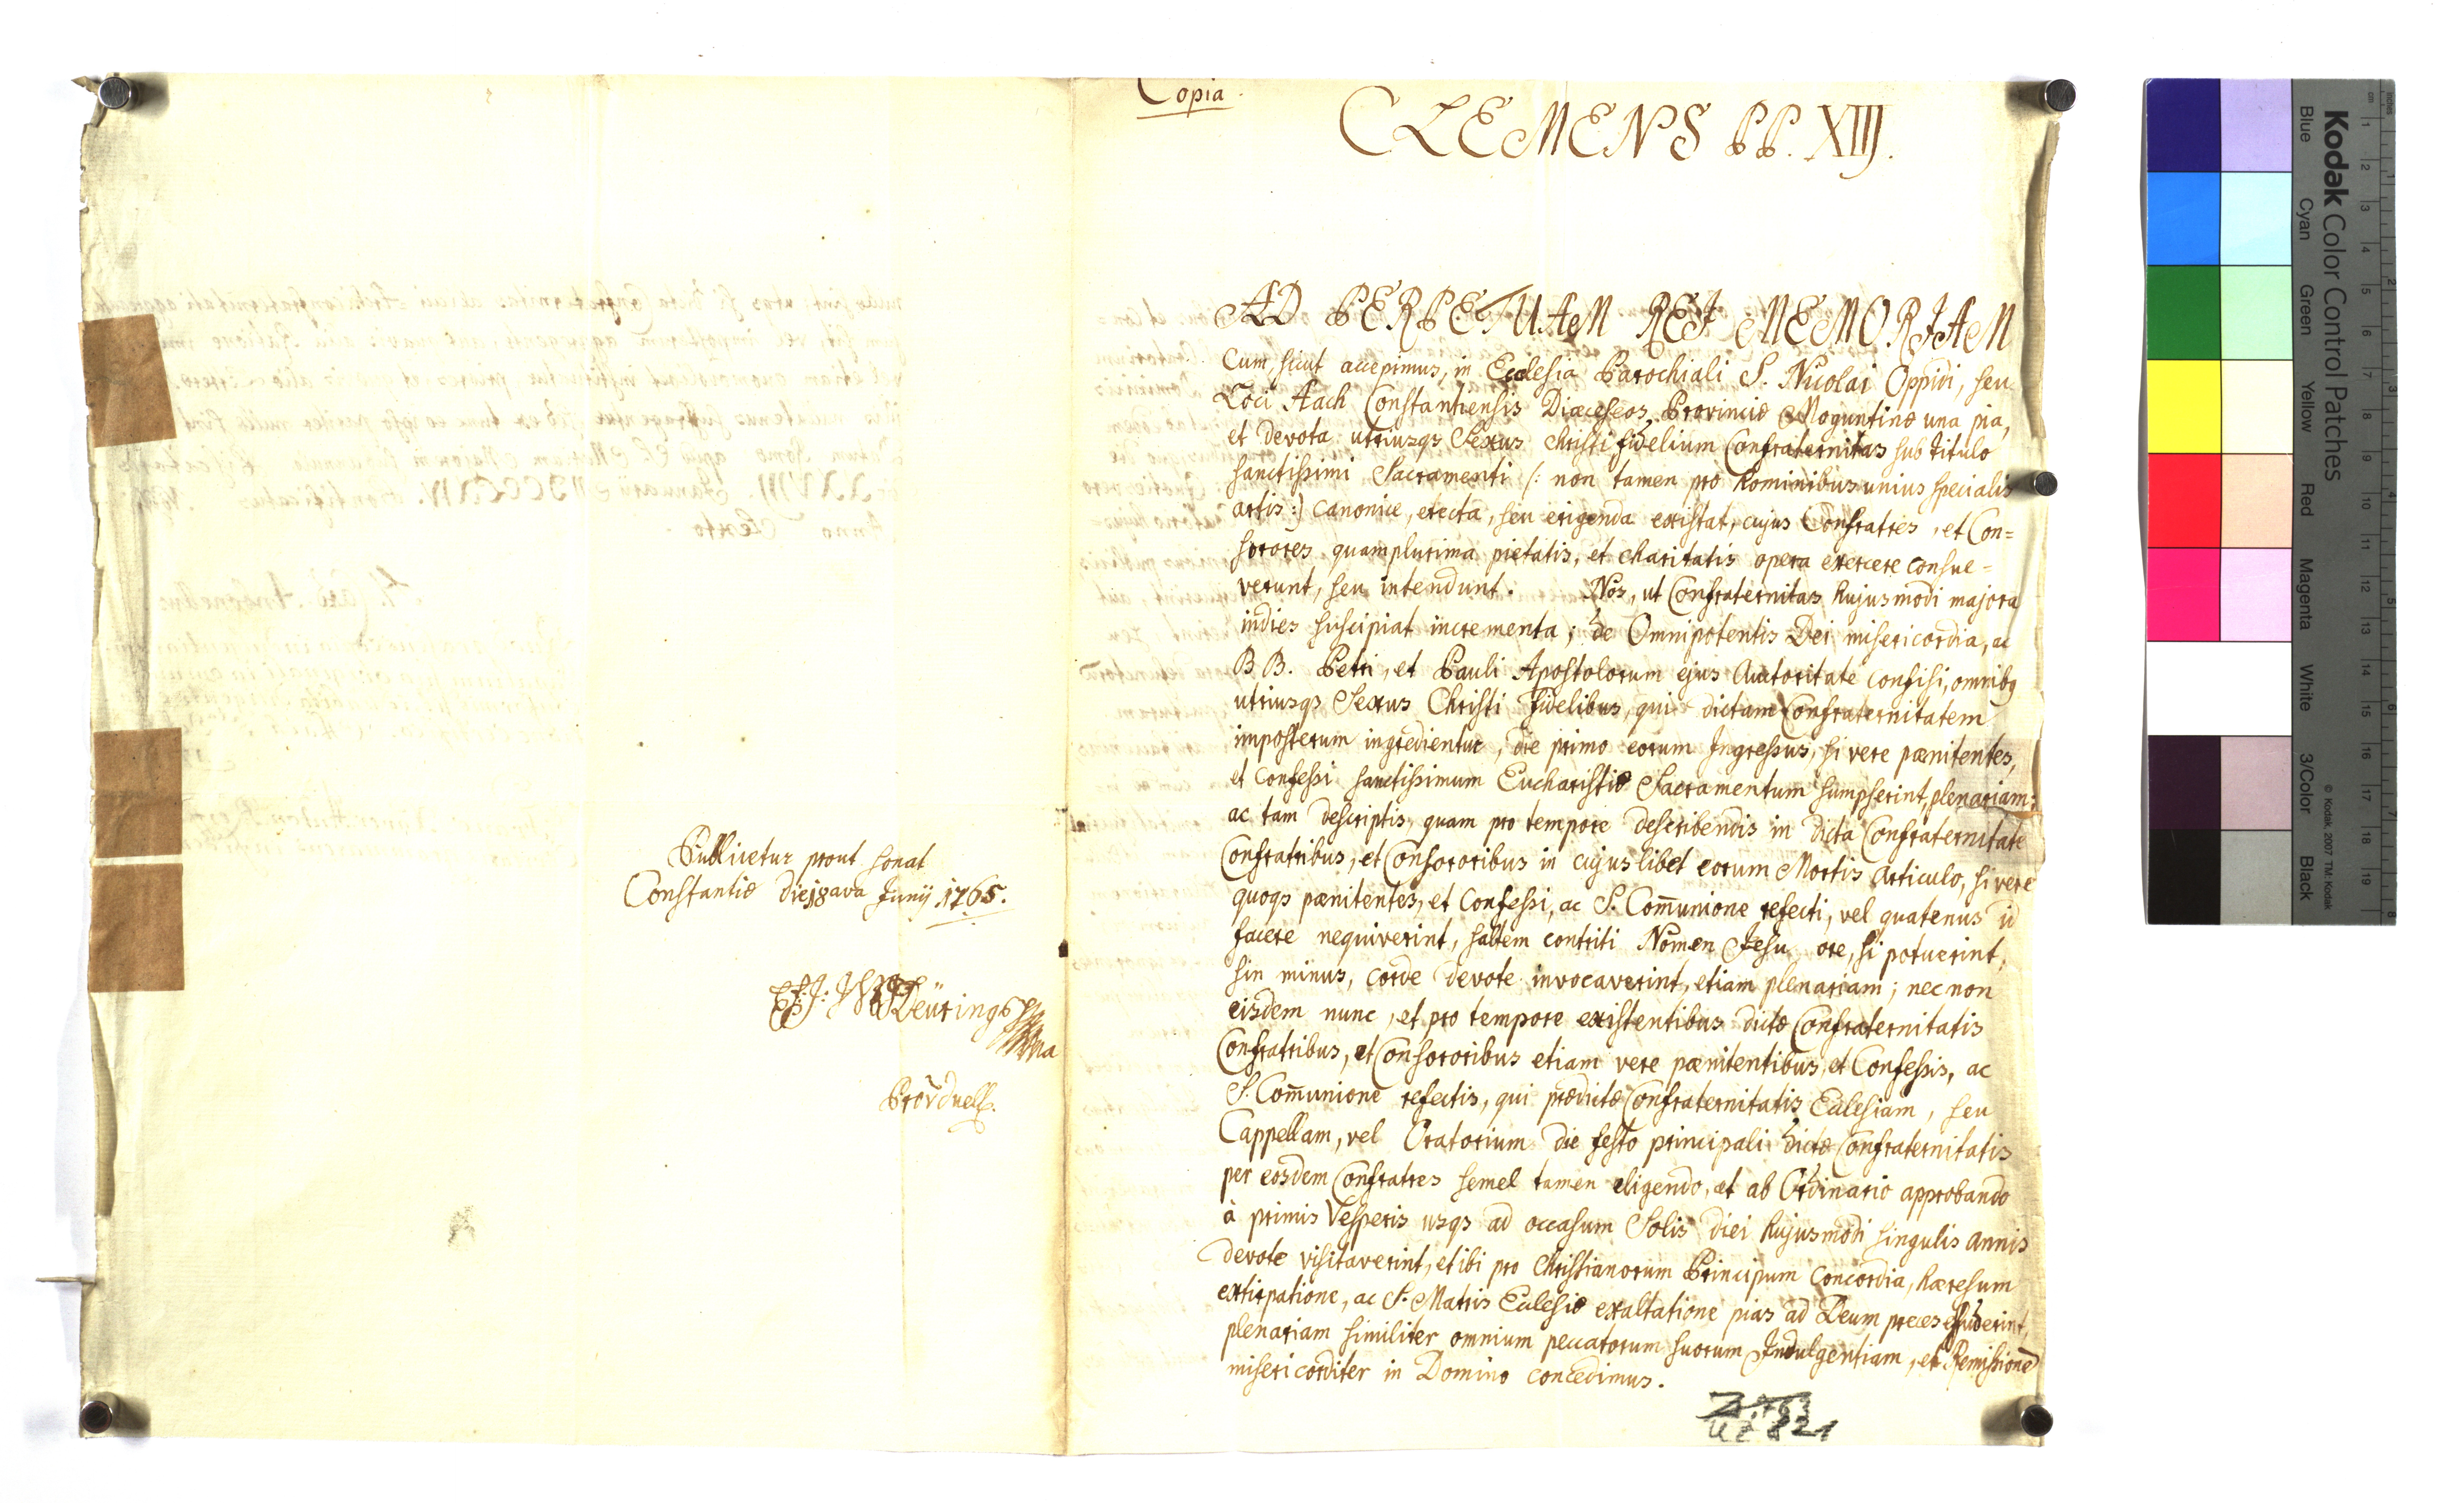 Publicetur prout sonat
Constantiæ die 18ava Junij 1765.
Deüring
Copia.
CLEMENS PP. XIII.
AD PERPETUAM REJ MEMORJAM
Cum, sicut accepimus, in Ecclesia Parochiali S. Nicolai Oppidi, seu
Loci Aach Constantiensis Diæceseos, Provinciæ Moguntinæ una pia,
et devota utriusqs Sexus Christi fidelium Confraternitas sub titulo
sanctissimi Sacramenti /: non tamen pro hominibus unius specialis
artis :/ canonice, erecta, seu erigenda existat, cujus Confratres, et Con=
sorores quamplurima pietatis, et charitatis opera exercere consue=
verunt, seu intendunt. Nos, ut Confraternitas hujusmodi majora
indies suscipiat incrementa; de Omnipotentis Dei misericordia, ac
B B. Petri, et Pauli Apostolorum ejus Auctoritate confisi, omnibq
utriusqs Sexus Christi fidelibus, qui dictam Confraternitatem
imposterum ingredientur, die primo eorum Ingressus, si vere pænitentes,
et Confessi sanctissimum Eucharistiæ Sacramentum sumpserint, plenariam;
ac tam descriptis, quam pro tempore describendis in dicta Confraternitate
Confratribus, et Consororibus in cujuslibet eorum Mortis Articulo, si vere
quoqs pænitentes, et Confessi, ac S. Com̄unione refecti, vel quatenus id
facere nequiverint, saltem contriti Nomen Jesu ore, si potuerint,
sin minus, corde devote invocaverint, etiam plenariam; nec non
eisdem nunc, et pro tempore existentibus dictæ Confraternitatis
Confratribus, et Consororibus etiam vere pænitentibus, et Confessis, ac
S. Com̄unione refectis, qui prædictæ Confraternitatis Ecclesiam, seu
Cappellam, vel Oratorium die festo principali dictæ Confraternitatis
per eosdem Confratres semel tamen eligendo, et ab Ordinario approbando
à primis Vesperis usqs ad occasum Solis diei hujusmodi singulis annis
devote visitaverint, et ibi pro Christianorum Principum Concordia, hæresum
extirpatione, ac S. Matris Ecclesiæ exaltatione pias ad Deum preces effuderint,
plenariam similiter omnium peccatorum suorum Indulgentiam, et Remissionē
misericorditer in Domino concedimus.
821
Kodak Color Control Patches
Blue Cyan Green Yellow Red Magenta White 3/Color Black
© Kodak, 2007 TM: Kodak
cm 1 2 3 4 5 6 7 8 9 10 11 12 13 14 15 16 17 18 19
inches 1 2 3 4 5 6 7 8